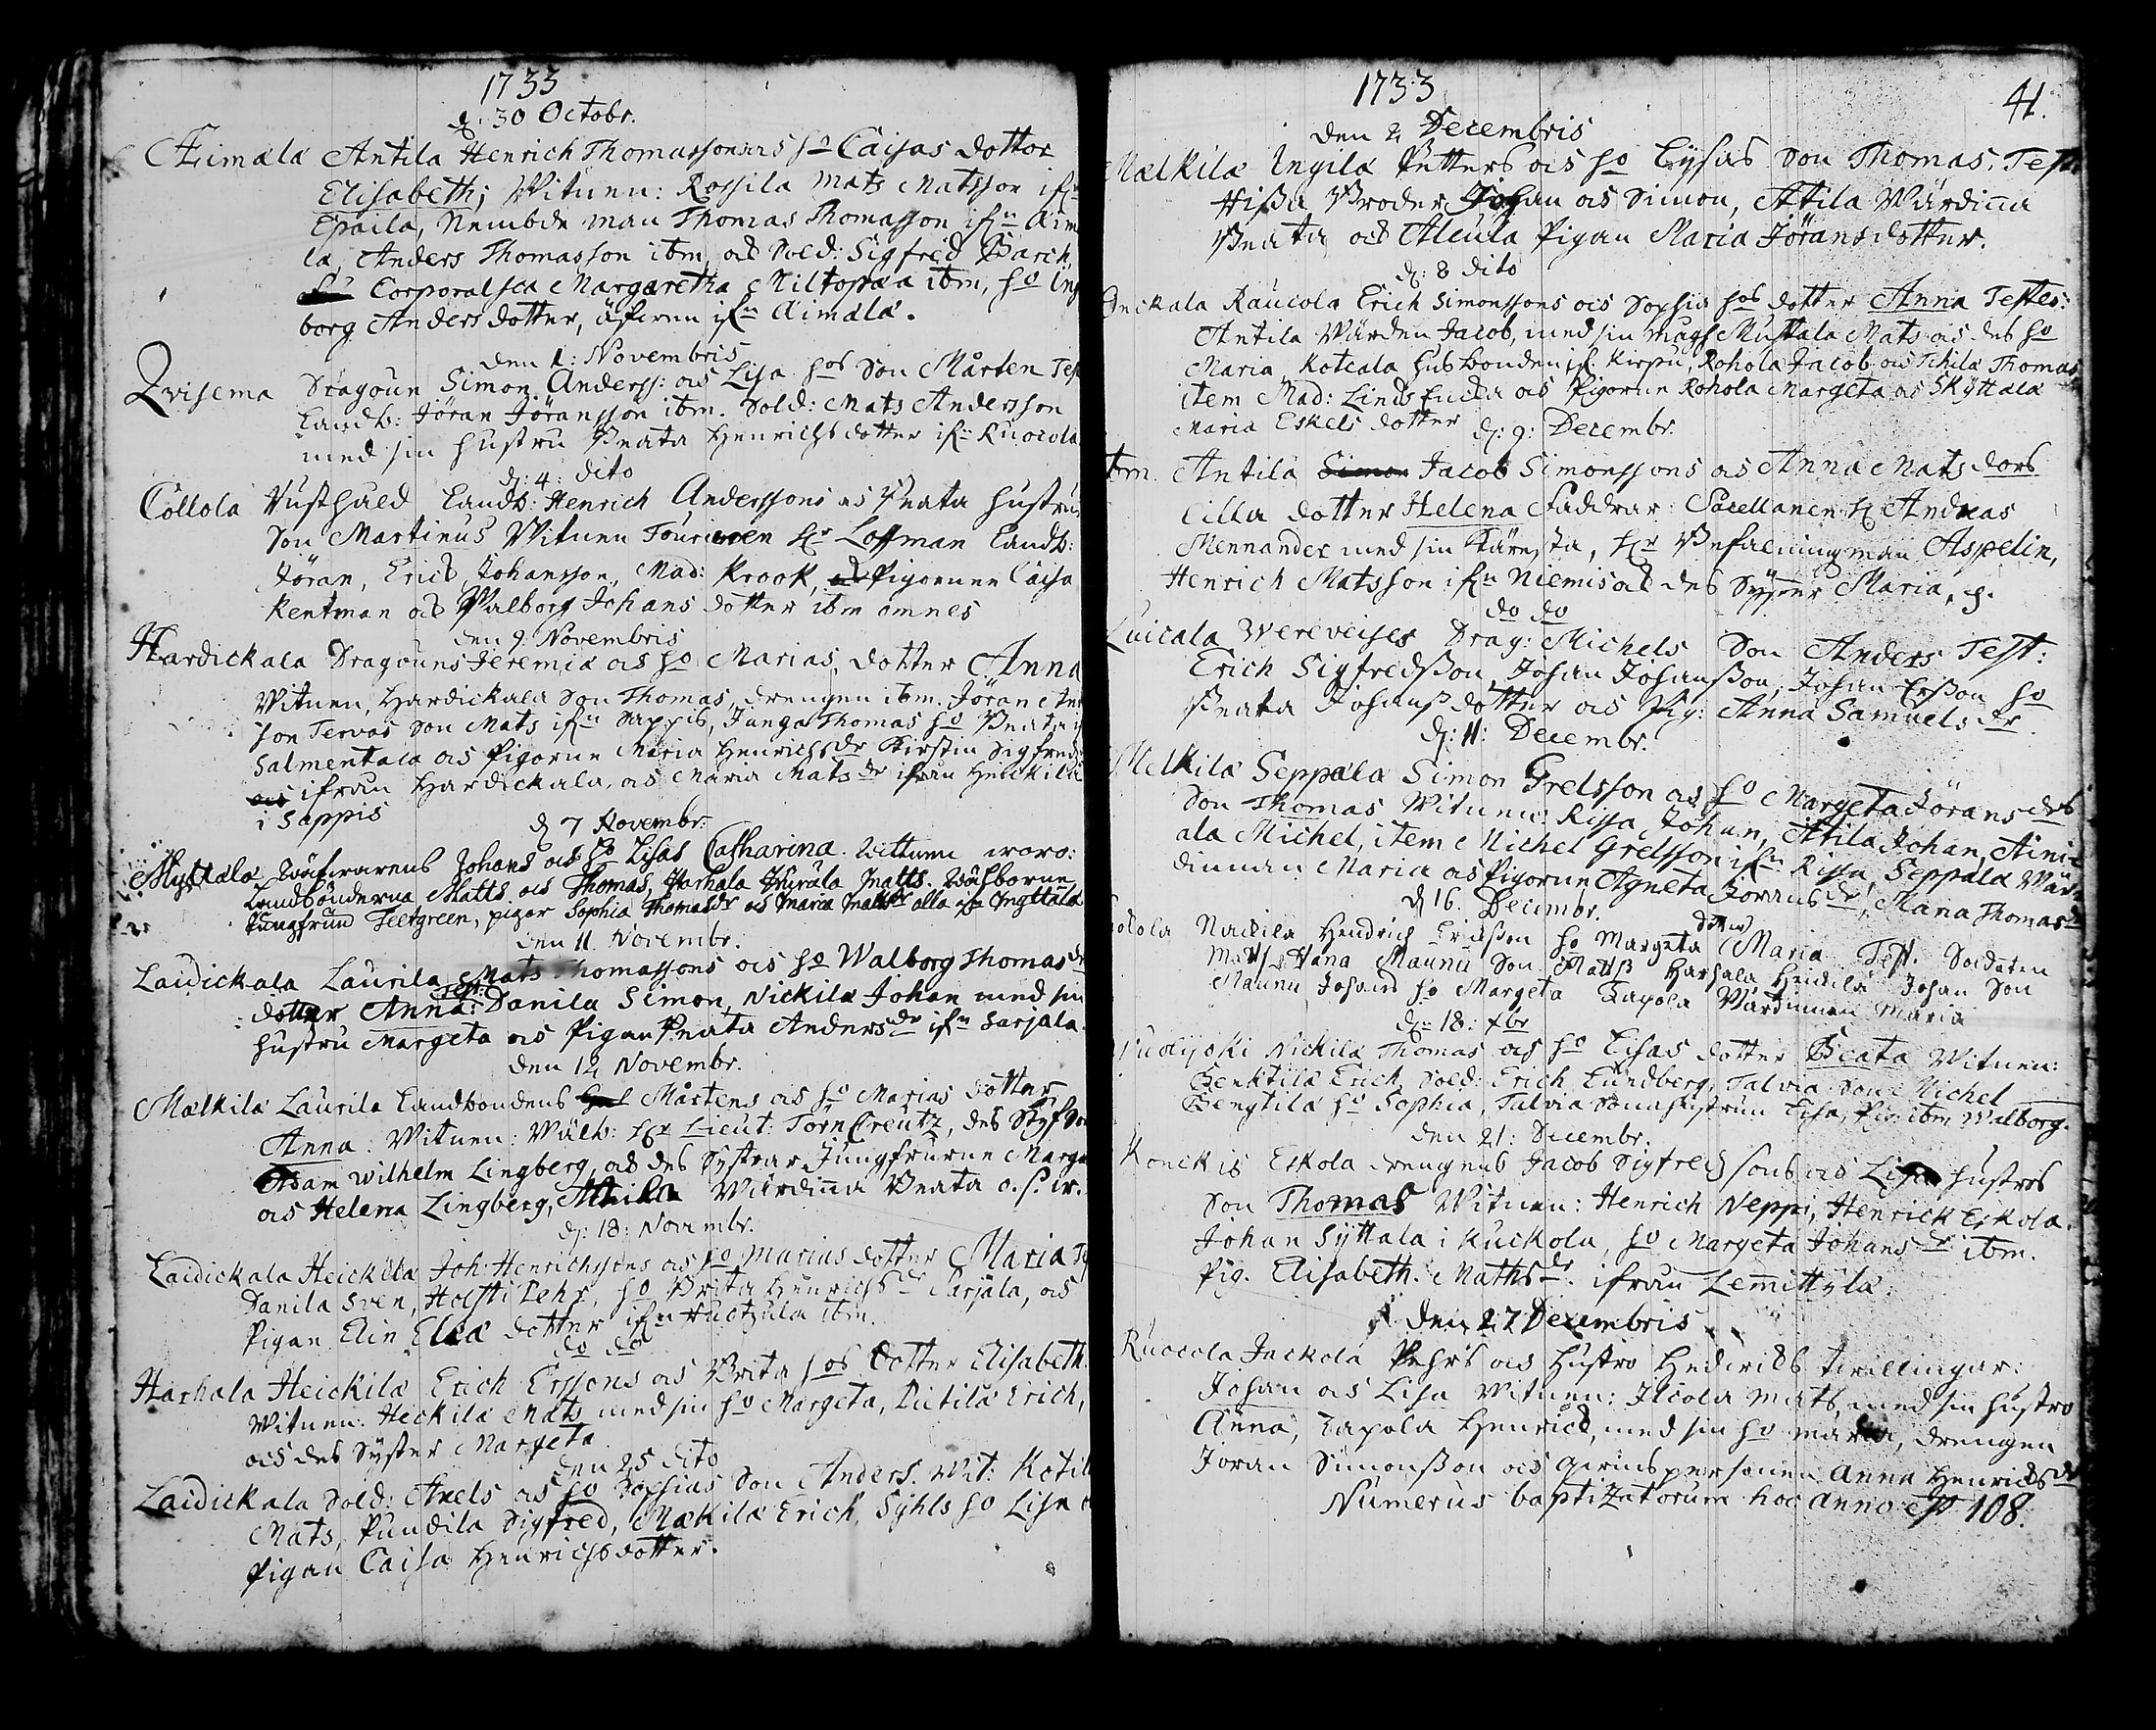 1733
d. 30 Octobr.
Æimälä Antila Henrich Thomassons ocs ho Caisas dotter
Elisabeth; Witnen: Rossila Mats Matsson ifrn
Epaila, Nembde man Thomas Thomasson ifrn Aimä
la, Anders Thomasson ibm, och Sold: Sigfred Barck
Corporalsca Margaretha Miltopæa ibm, ho Ing
borg Anders dotter, ifrn Aimälä.
den 1: Novembris
Qvisema Dragoun Simon Anderss: ocs Lisa hos Son Mårten Test
Landb: Jöran Jöransson ibm. Sold: Mats Andersson
med sin hustru Beata Henrichsdotter ifrn Ruocola
d: 4: dito
Collola Landb: Henrich Anderssons ocs Beata hustrus
Son Martinus Witnen Hr Loffman Landb:
Jöran, Erick Johansson, Mad: Krook, Pigornen Caisa
Kentman och Walborg Johans dotter ibm omnes
den 9 Novembris
Hardickala Dragouns Jeremia ocs ho Marias dotter Anna
Witnen, Hardickala Son Thomas, drengen ibm. Jöran
son Tervas Son Mats ifrn Sappis, Junga Thomas ho Beata
Salmentaca ocs Pigorne Maria Henrichsdr Kirstin Sigfreds
ifrån Hardickala, ocs Maria Matsdr ifrån Heickilä
i Sappis
d 7 Novembr:
Myttälä Johans ocs ho Lisas Catharina. Wittnen woro:
Landbönderna Matts ocs Thomas, Harhala Matts, Wälborne
Jungfrun Teetgreen, pigor Sophia Thomasdr ocs Maria Mattsdr alla ifrn Myttälä
den 11 Novembr.
Laidickala Laurila Mats Thomassons ocs ho Walborg Thomasdr
dotter Anna: Test: Danila Simon, Nickilä Johan med sin
hustru Margeta ocs Pigan Beata Andersdr ifrn Sarjala.
den 12 Novembr.
Mælkilä Laurila Landbondens Mårtens ocs ho Marias dotter
Anna. Witnen: Wälb: Hr Lieut: TörnCreutz, des Styfson
Adam Wilhelm Lingberg, och des Systrar Jungfrurne Marga
ocs Helena Lingberg, Attila Wärdinna Beata o. s. w.
d: 18: Novembr.
Laidickala Heickilä Joh: Henrichssons ocs ho Marias dotter Maria
Danila Sven, Holsti Pehr, ho Brita Henrichsdr Sarjala, ocs
Pigan Elin dotter ifrn Huctzula ibm.
do do
Harhala Heickilä Erich Erssons ocs Brita hos dotter Elisabeth.
Witnen: Heckilä Mats med sin ho Margeta, Pietilä Erich,
ocs des Syster Margeta.
den 25 dito
Laidickala Sold: Axels ocs ho Sophias Son Anders. Wit: Kotil
Mats, Pundila Sigfred, Mækilä Erich, Syhls ho Lisa
Pigan Caisa Henrichsdotter.
1733
41.
den 2 Decembris
Mælkilä Yngilä Petters ocs ho Lysas Son Thomas. Test
Hissa Broder Johan ocs Simon, Attila Wärdinna
Beata och Alcula Pigan Maria Jöransdotter.
d: 8 dito
Jnckala Raucola Erich Simonssons ocs Sophia hos dotter Anna Testes:
Antila Wärden Jacob, med sin magh Mustala Mats ocs des ho
Maria Koteala husbonden Kirpu, Rohola Jacob ocs Tihilä Thomas
item Mad: ocs Pigorne Rohola Margeta ocs Skyttälä
Maria Eskels dotter
d: 9: Decembr.
ibm. Antila Simon Jacob Simonssons ocs Anna Mats dors
Lilla dotter Helena Faddrar: Sacellanen Hr Andreas
Mennander med sin Kärresta, Hr Befalningsman Aspelin,
Henrich Matsson ifrn Niemis och des Syster Maria, p.
do do
Luicala Wereveises Drag: Michels Son Anders Test:
Erich Sigfredsson, Johan Johansson, Johan Ersson ho
Beata Johansdotter ocs Pig: Anna Samuelsdr
d: 11: Decembr.
Melkilä Seppälä Simon Grelsson ocs ho Margeta Jöransdrs
Son Thomas Witnen: Rissa Johan, Attila Johan,
ala Michel, item Michel Grelsson ifrn Rissa, Seppälä Wär
dinnan Maria ocs Pigorne Agneta Joransdr, Maria Thomasdr
d 16. Decembr.
Nackila Hendrich Erikssen ho Margeta dotter Maria Test. Soldaten
Matts Maunu Son Matts Harhala Heickilä Johan Son
Maunu Johans ho Margeta Tapola Wärdinnan Maria
dn 18: xbr
Nickilä Thomas ocs ho Lisas dotter Beata Witnen:
Benktilä Erich, Sold: Erich Lundberg, Talvia Son Michel
Bengtilä ho Sophia, Talvia Sonahustrun Lisa, Pig: ibm Walborg.
den 21: Decembr.
Konckis Eskola drengens Jacob Sigfredssons ocs Lisa hustros
Son Thomas Witnen: Henrich Neppi, Henrick Eskola.
Johan Syttala i Kuckola, ho Margeta Johansdr ibm.
Pig. Elisabeth Mathsdr. ifrån Lemmittylä
den 27 Decembris
Ruocola Jnckola Pehrs ocs Hustro Hedvichs twillingar:
Johan ocs Lisa Witnen: Jlcola Mats, med sin hustro
Anna, Tapola Henrich, med sin ho Maria, drengen
Joran Simonsson ocs qwinspersonen Anna Henrichsdr
Numerus baptizatorum hoc Anno est 108.